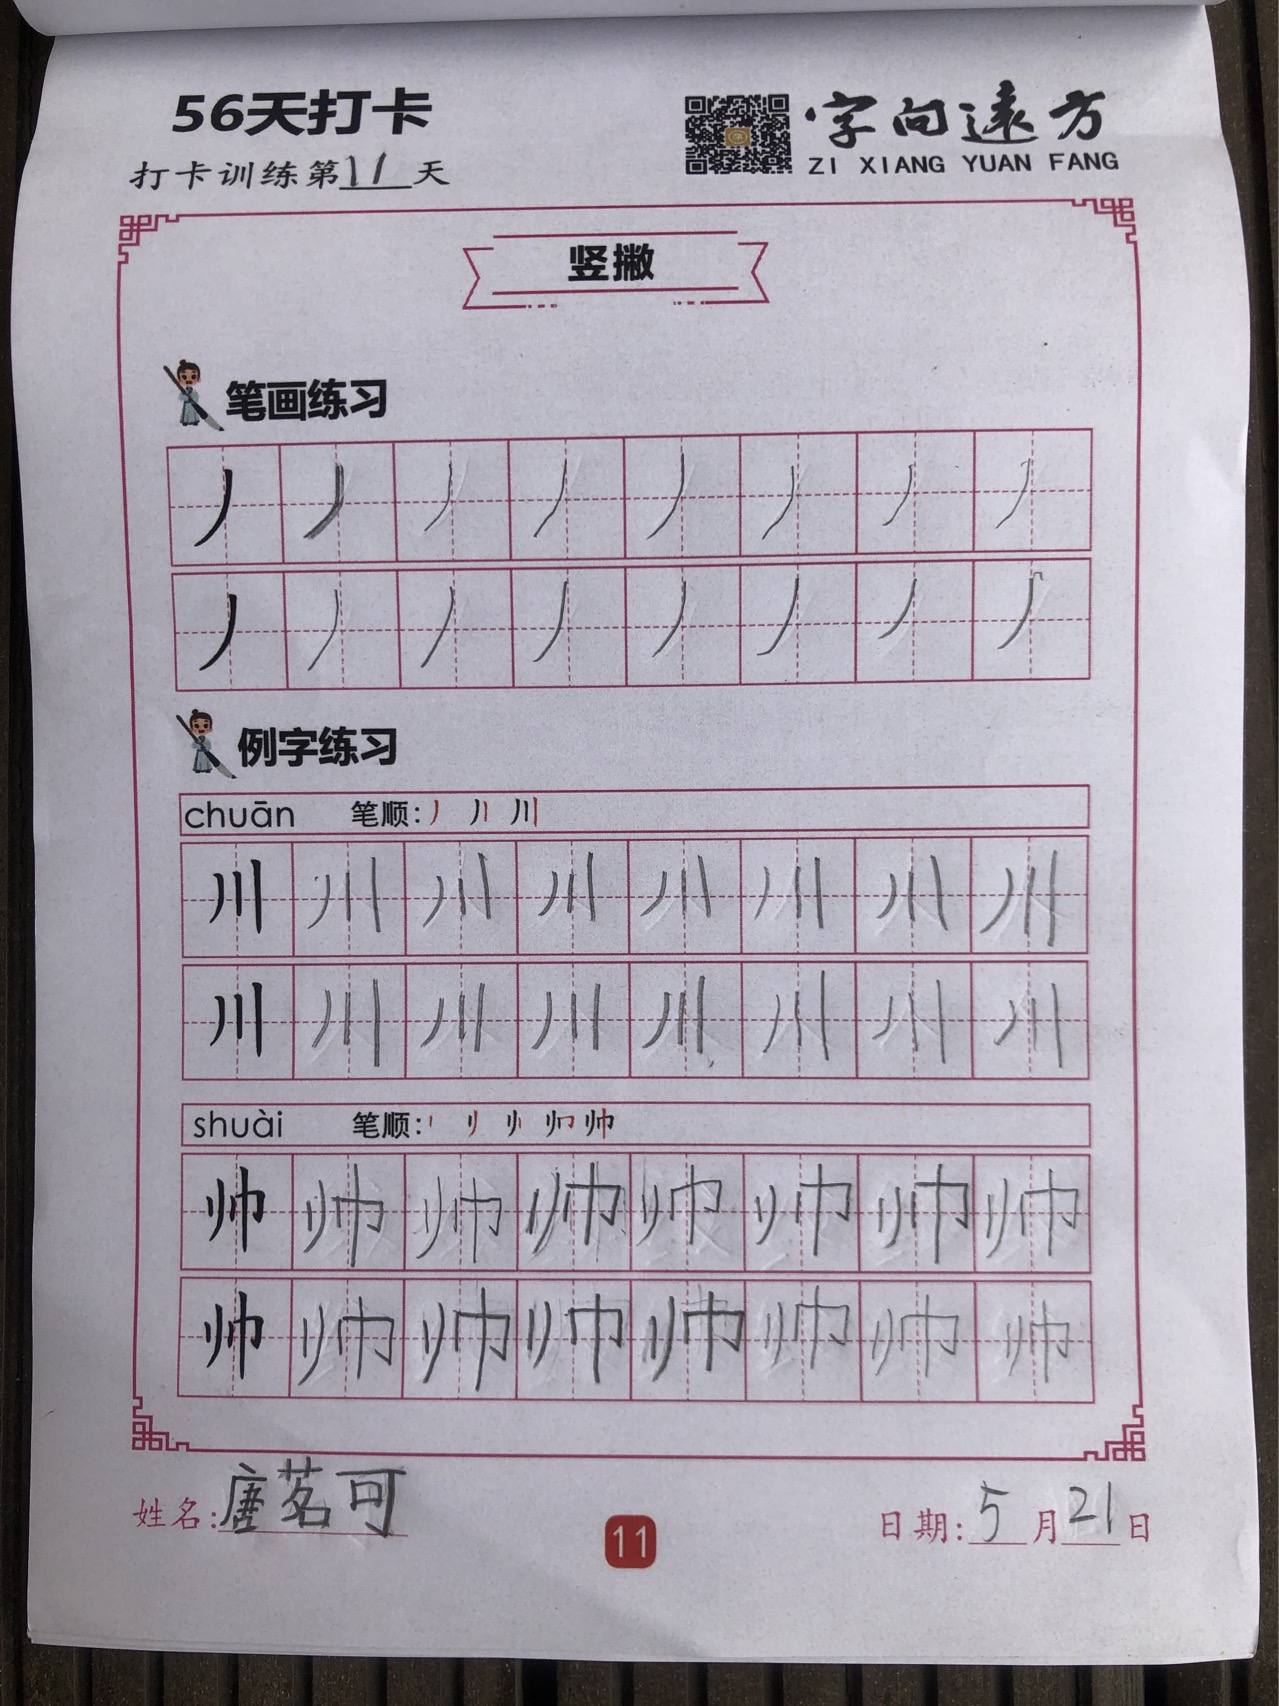 56天打卡
字向遠方
打卡训练第11天
ZI XIANG YUAN FANG
竖撇
笔画练习
丿 丿 丿 丿 丿 丿 丿 丿
丿 丿 丿 丿 丿 丿 丿 丿
例字练习
chuān 笔顺: 丿 丿丨 川
川 川 川 川 川 川 川 川
川 川 川 川 川 川 川 川
shuài 笔顺: 丨 刂 帅
帅 帅 帅 帅 帅 帅 帅 帅
帅 帅 帅 帅 帅 帅 帅 帅
姓名:唐茗可
11
日期:5月21日